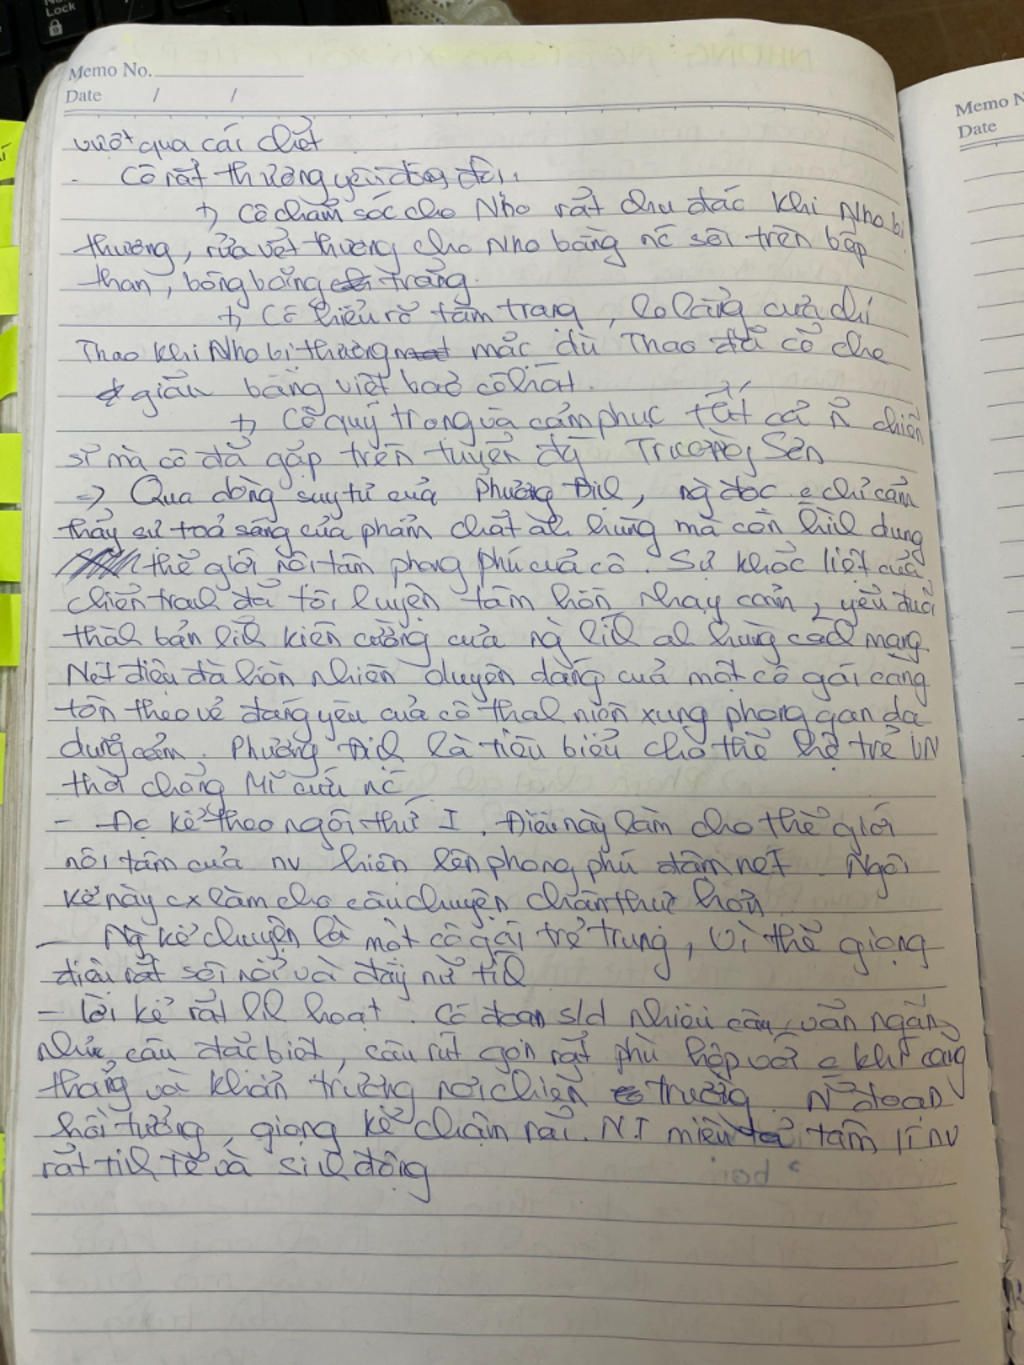 Lock
Memo No.
Date / /
Memo N
Date
vượt qua cái chết
- Cô rất thương yêu đồng đội.
+) Cô chăm sóc cho Nho rất chu đáo khi Nho bị
thương, rửa vết thương cho Nho bằng nc sôi trên bếp
than, bông băng trắng.
+) Cô hiểu rõ tâm trạng, lo lắng của chị
Thao khi Nho bị thương mặc dù Thao đã cố che
giấu bằng việt bảo cô hát.
+) Cô quý trọng và cảm phục tất cả n~ chiến
sĩ mà cô đã gặp trên tuyến đg Trường Sơn
=> Qua dòng suy tư của Phương Định, ng đọc c chỉ cảm
thấy sự toả sáng của phẩm chất ah hùng mà còn hình dung
thế giới nội tâm phong phú của cô. Sự khốc liệt của
chiến tranh đã tôi luyện tâm hồn nhạy cảm, yếu đuối
thành bản lĩnh kiên cường của ng lính ah hùng cách mạng.
Nét điệu đà hồn nhiên duyên dáng của một cô gái càng
tôn theo vẻ đáng yêu của cô thanh niên xung phong gan dạ
dũng cảm. Phương Định là tiêu biểu cho thế hệ trẻ VN
thời chống Mĩ cứu nc
- Đc kể theo ngôi thứ I. Điều này làm cho thế giới
nội tâm của nv hiện lên phong phú đậm nét. Ngôi
kể này cx làm cho câu chuyện chân thực hơn
- Ng kể chuyện là một cô gái trẻ trung, vì thế giọng
điệu rất sôi nổi và đầy nữ tính
- Lời kể rất linh hoạt. Có đoạn s/d nhiều câu văn ngắn,
như câu đặc biệt, câu rút gọn rất phù hợp với c khí căng
thẳng và khẩn trương nơi chiến trường. N~ đoạn
hồi tưởng, giọng kể chậm rãi. NT miêu tả tâm lí nv
rất tinh tế và sinh động